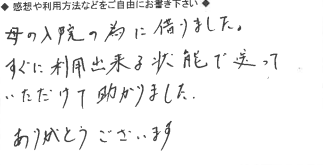 ◆ 感想や利用方法などをご自由にお書き下さい ◆
母の入院の為に借りました。
すぐに利用出来る状態で送って
いただけて助かりました.
ありがとうございます